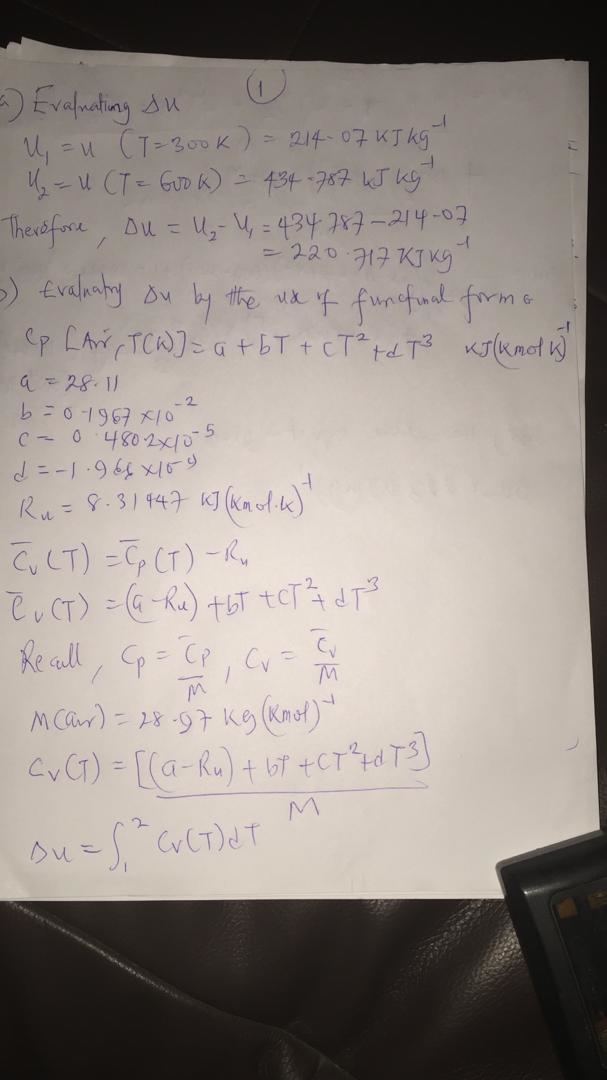 1
a) Evaluating Δu
U₁ = u (T=300K) = 214.07 KJkg⁻¹
U₂ = u (T=600K) = 434.787 kJ kg⁻¹
Therefore, Δu = U₂-U₁ = 434.787-214.07
= 220.717 KJkg⁻¹
b) Evaluatng Δu by the use of functional form
Cp [Air, T(K)] = a + bT + cT² + dT³ KJ(Kmol K)⁻¹
a = 28.11
b = 0.1967 x10⁻²
c = 0.4802x10⁻⁵
d = -1.966 x10⁻⁹
Ru = 8.31447 KJ(Kmol.K)⁻¹
C̅v(T) = C̅p(T) - Ru
C̅v(T) = (a-Ru) + bT + cT² + dT³
Recall, Cp = C̅p/M, Cv = C̅v/M
M(air) = 28.97 Kg(Kmol)⁻¹
Cv(T) = [(a-Ru) + bT + cT² + dT³]
M
Δu = ∫₁² Cv(T)dT